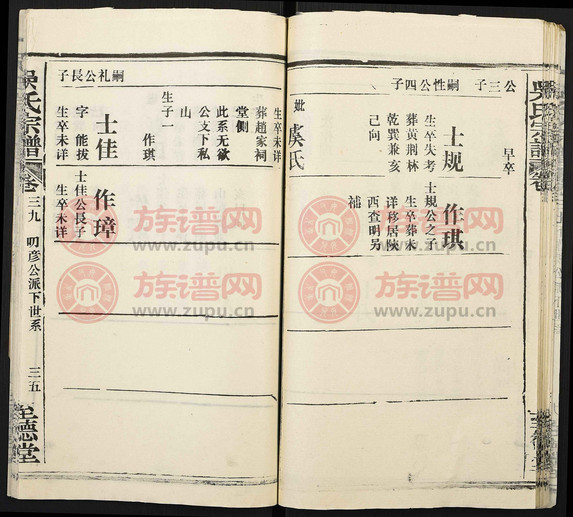 公三子
早卒
嗣性公四子
士规
生卒失考
葬黄荆林
乾巽兼亥
己向
妣
虞氏
作琪
士规公之子
生卒葬未
详移居陕
西查明另
补
生卒未详
葬趙家祠
堂側
此系无欲
公支下私
山
生子一
作琪
嗣礼公長子
士佳
字 能拔
生卒未详
作璋
士佳公長子
生卒未详
吴氏宗譜
卷三九
明彦公派下世系
三五
至德堂
族谱网
www.zupu.cn
族谱网
www.zupu.cn
族谱网
www.zupu.cn
族谱网
www.zupu.cn